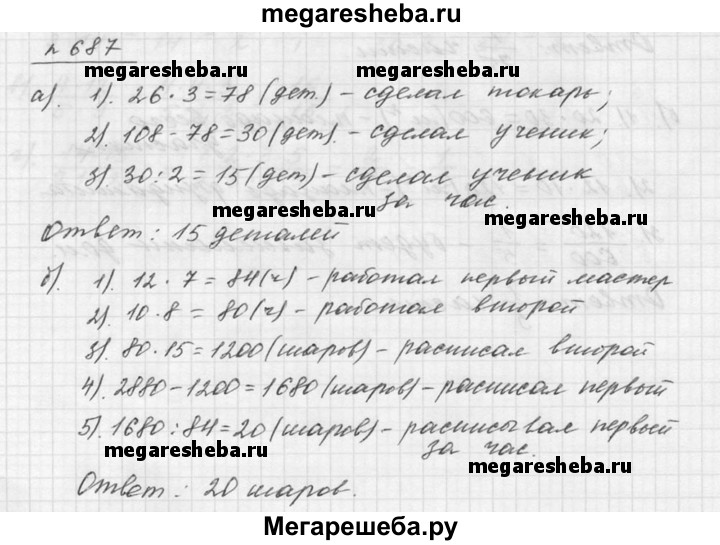 megaresheba.ru
№ 687
megaresheba.ru megaresheba.ru
а). 1). 26 · 3 = 78 (дет.) – сделал токарь;
2). 108 - 78 = 30 (дет). – сделал ученик;
3). 30 : 2 = 15 (дет) – сделал ученик
за час.
megaresheba.ru megaresheba.ru
Ответ: 15 деталей
б). 1). 12 · 7 = 84 (ч) – работал первый мастер
2). 10 · 8 = 80 (ч) – работал второй
3). 80 · 15 = 1200 (шаров) – расписал второй
4). 2880 – 1200 = 1680 (шаров) – расписал первый
5). 1680 : 84 = 20 (шаров) – расписывал первый
за час.
megaresheba.ru megaresheba.ru
Ответ: 20 шаров.
Мегарешеба.ру